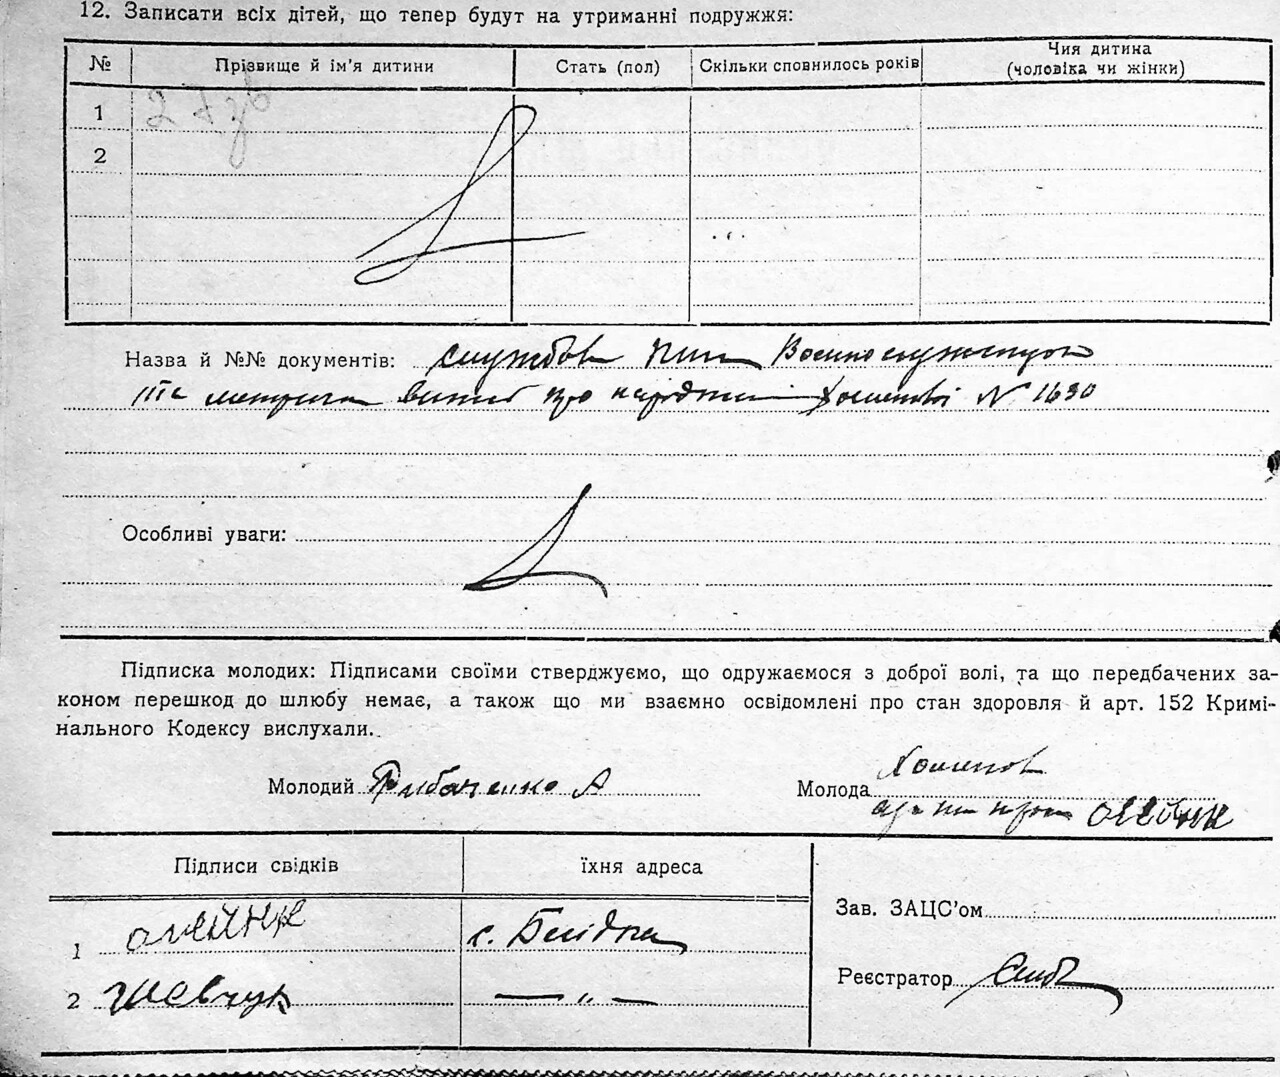 12. Записати всіх дітей, що тепер будут на утриманні подружжя:
№ Прізвище й ім'я дитини Стать (пол) Скільки сповнилось років Чия дитина
(чоловіка чи жінки)
1
2
Назва й №№ документів: службова Военнослужащого
та метрична про народження N 1630
Особливі уваги:
Підписка молодих: Підписами своїми стверджуємо, що одружаємося з доброї волі, та що передбачених за-
коном перешкод до шлюбу немає, а також що ми взаємно освідомлені про стан здоровля й арт. 152 Кримі-
нального Кодексу вислухали.
Молодий Рибаченко А
Молода
олейник
Підписи свідків їхня адреса
Зав. ЗАЦС'ом
1 олейник с.
2 Шевчук — „ —
Реєстратор